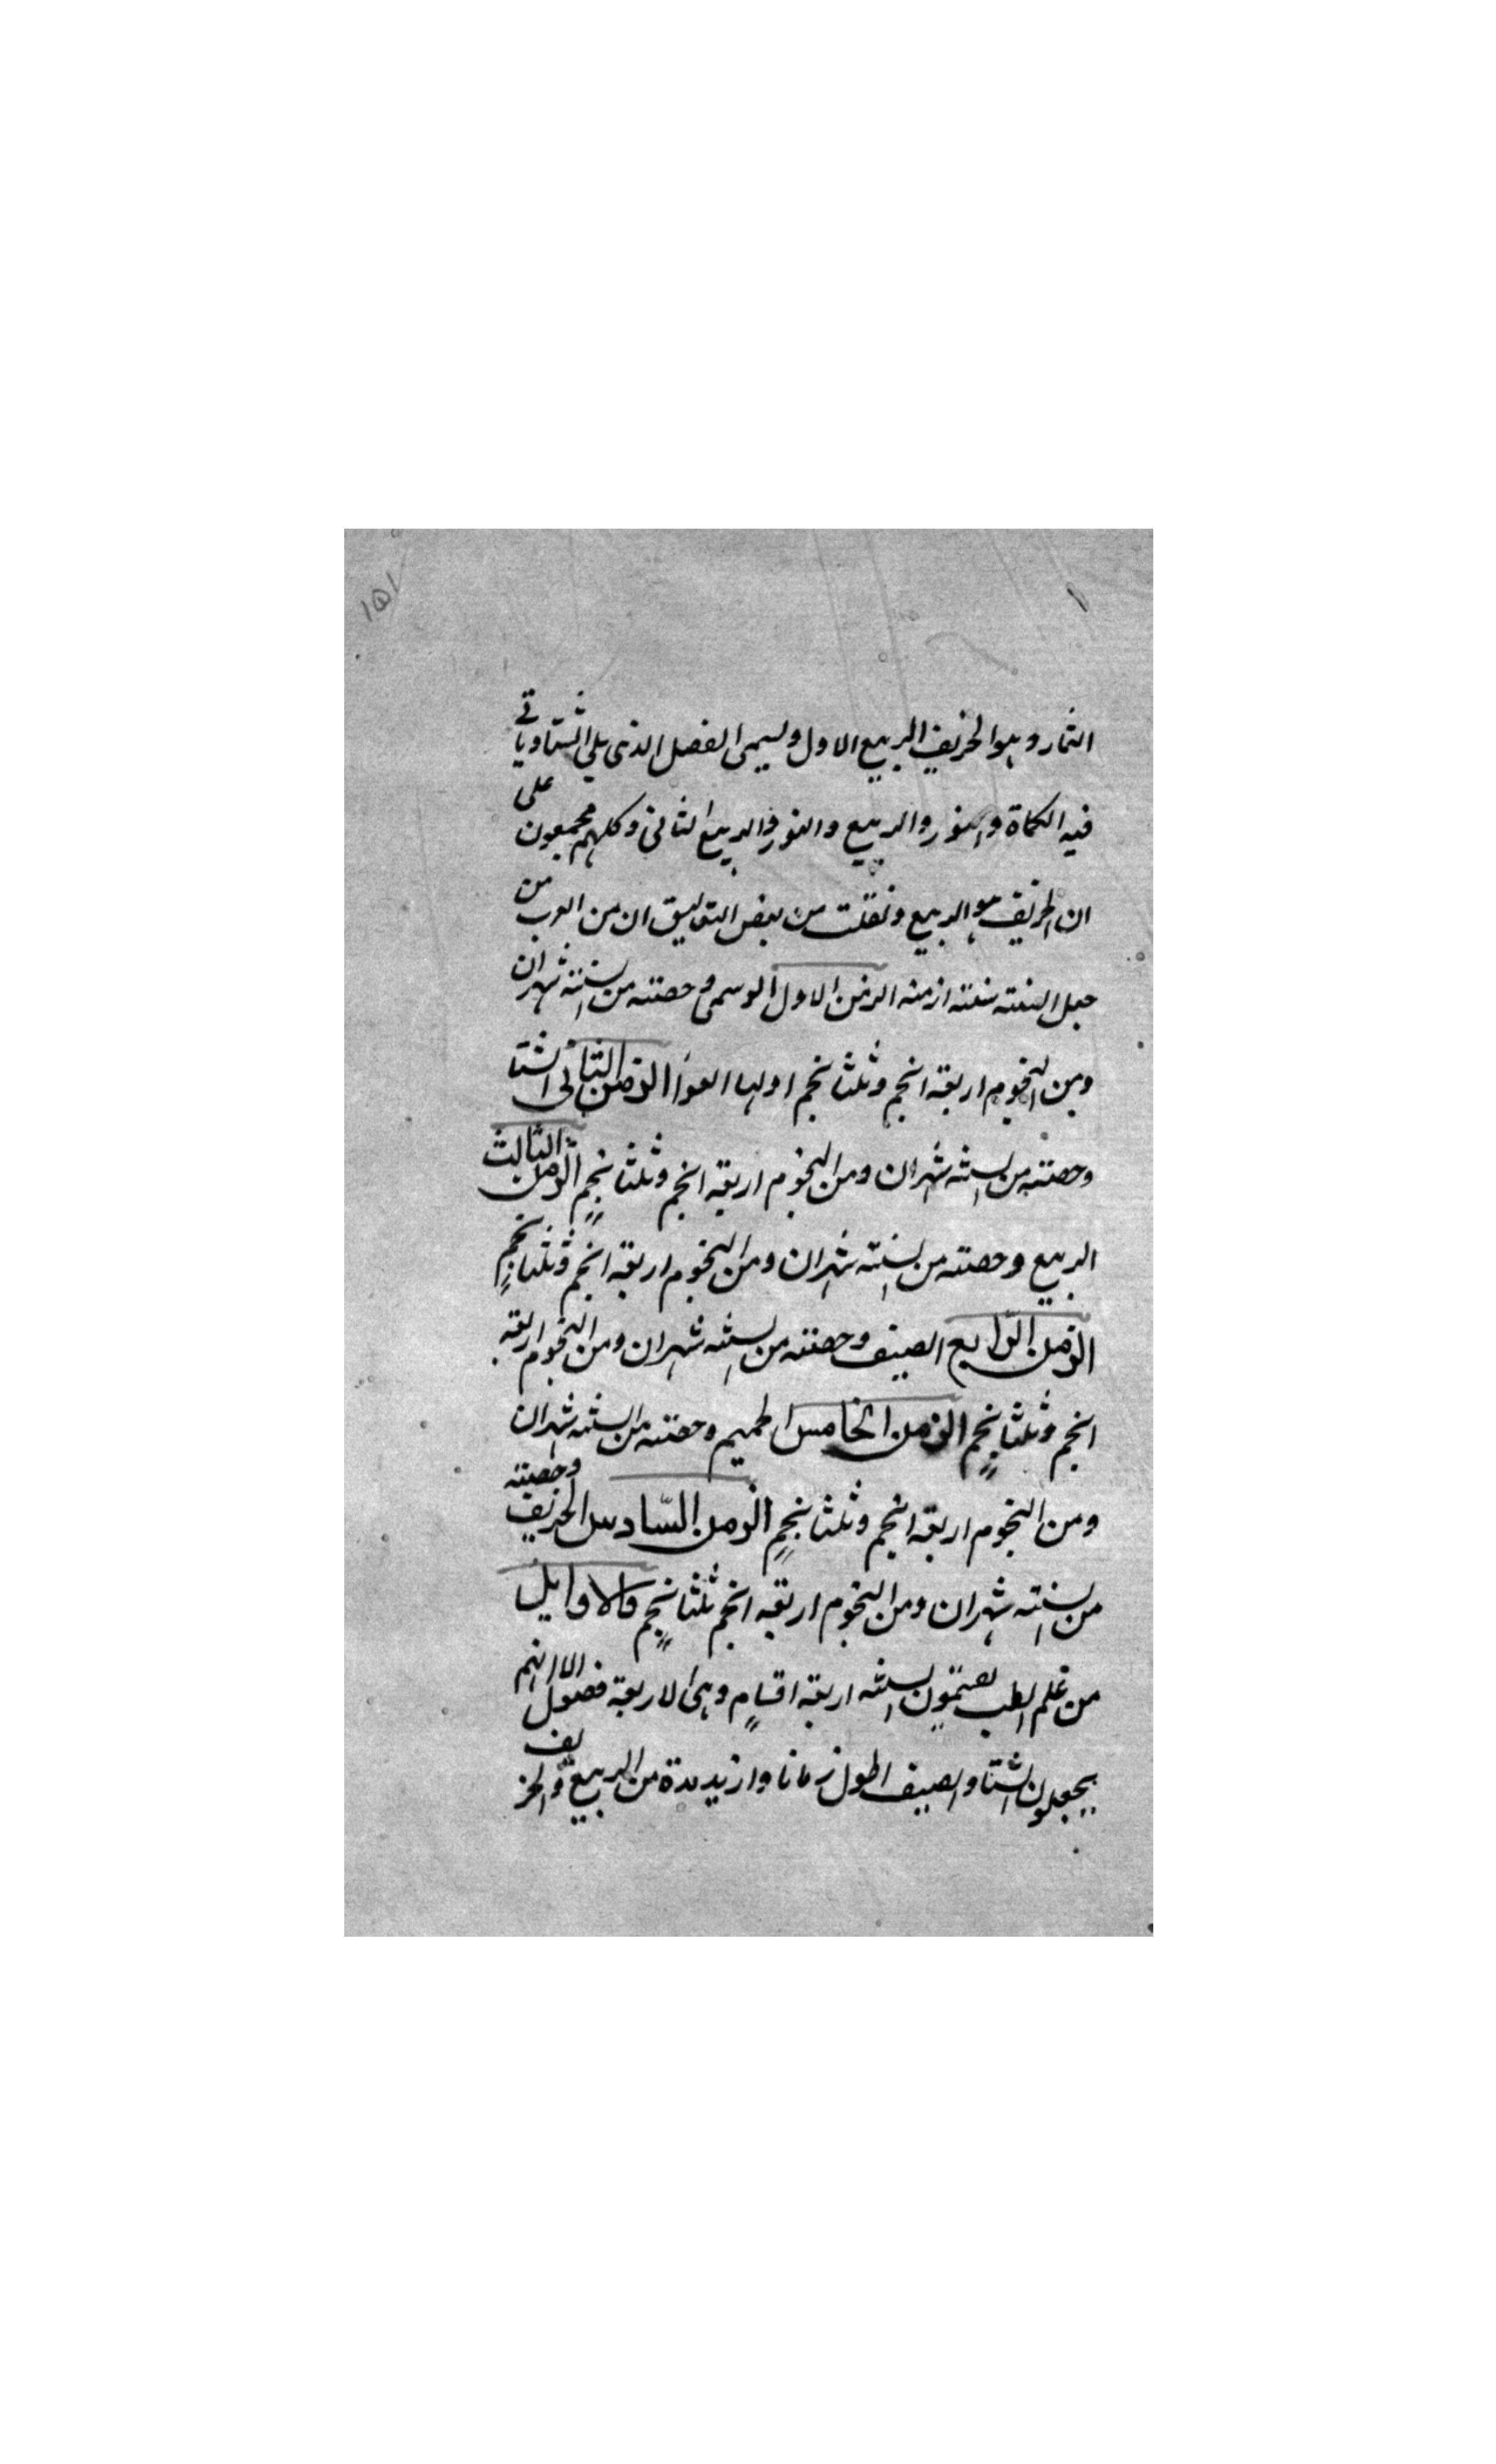 ١٥١
الثمار وهو الخريف الربيع الاول ويسمى الفصل الذى يلى الشتا وياتى
فيه الكماة والنور والربيع والنور الربيع الثانى وكلهم مجمعون على
ان الخريف هو الربيع ونقلت من بعض التعاليق ان من العرب من
جعل السنة ستة ازمنة الزمن الاول الوسمى وحصته من السنة شهران
ومن النجوم اربعة انجم وثلثا نجم اولها العوا الزمن الثانى الشتا
وحصته من السنة شهران ومن النجوم اربعة انجم وثلثا نجم الزمن الثالث
الربيع وحصته من السنة شهران ومن النجوم اربعة انجم وثلثا نجم
الزمن الرّابع الصيف وحصته من السنة شهران ومن النجوم اربعة
انجم وثلثا نجم الزمن الخامس الحميم وحصته من السنة شهران
ومن النجوم اربعة انجم وثلثا نجم الزمن السّادس الخريف وحصته
من السنة شهران ومن النجوم اربعة انجم ثلثا نجم والاوايل
من علم الطب يقسّمون السنة اربعة اقسام وهى الاربعة فصول الا انهم
يجعلون الشتا والصيف اطول زمانا وازيد مدة من الربيع والخريف